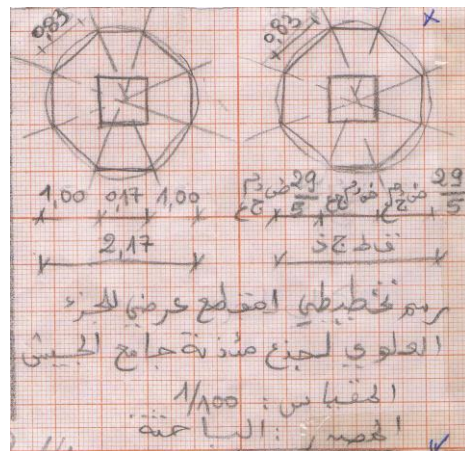 0,83 0,83
1,00 0,17 1,00
29/5 29/5
2,17
رسم تخطيطي لمقطع عرضي للجزء
العلوي لجذع مئذنة جامع الجيش
المقياس: 1/100
المصدر: الباحثة